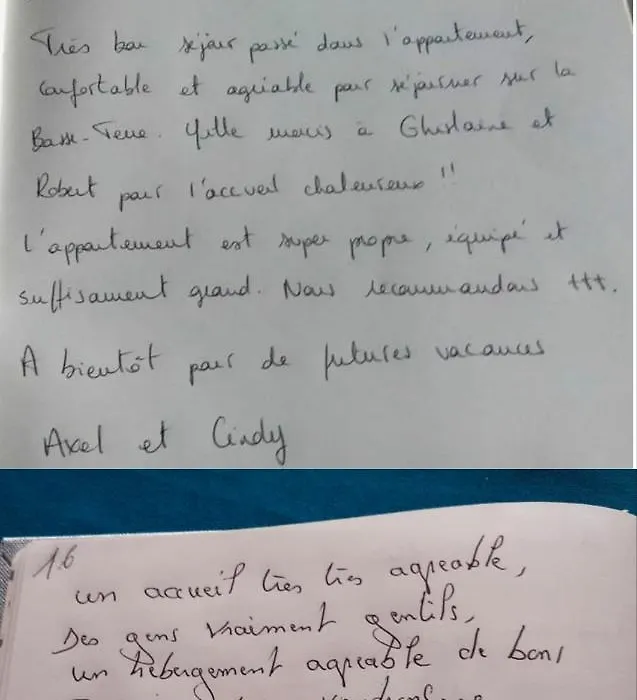 Très bon séjour passé dans l'appartement,
confortable et agréable pour séjourner sur la
Basse-Terre. Mille mercis à Ghislaine et
Robert pour l'accueil chaleureux !!
L'appartement est super propre, équipé et
suffisament grand. Nous recommandons +++.
A bientôt pour de futures vacances
Axel et Cindy
16
un accueil très très agréable,
Des gens vraiment gentils,
un hébergement agréable de bons